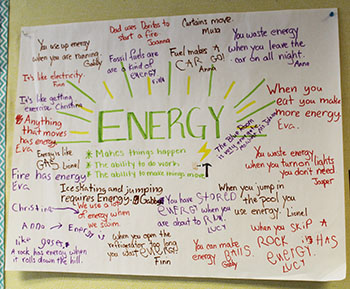 Dad uses Doritos to
start a fire
Joanna
Curtains move.
Maxa
You use up energy
when you are running.
Gabby
Fossil fuels are
are a kind of
energy
Fuel makes a
CAR GO!
Anna
You waste energy
when you leave the
car on all night.
Anna
It's like electricity
Finn
It's like getting
exercise Christina
Anything
that moves
has energy
Eva
ENERGY
When you
eat you make
more energy.
Eva.
The Blue Room
is very energetic
* Makes things happen
* The ability to do work
* The ability to make things move
Energy is like
GAS Lionel
Fire has energy
Eva
You waste energy
when you turn on lights
you don't need
Jasper
Ice skating and jumping
requires Energy. Gabby
Christina
We use a lot
of energy when
we swim.
You have STORED
ENERGY when you
are about to RUN
LUCY
When you jump in
the pool you
use energy. Lionel
Adds Energy
like gases.
A rock has energy when
it rolls down the hill.
when you open the
refrigerator too long
you wast energy
Finn
You can make
energy BALLS.
Gabby
When you SKIP A
ROCK it HAS
ENERGY.
LUCY